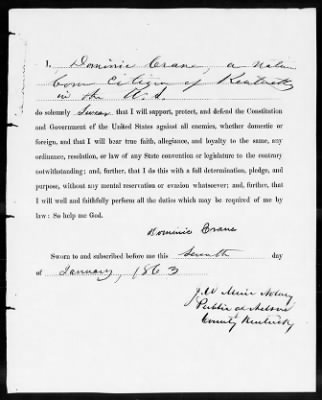 I, Dominic Crane, a natu
born Citizen of Kentucky
in the U.S.
do solemnly Swear that I will support, protect, and defend the Constitution
and Government of the United States against all enemies, whether domestic or
foreign, and that I will bear true faith, allegiance, and loyalty to the same, any
ordinance, resolution, or law of any State convention or legislature to the contrary
notwithstanding; and, further, that I do this with a full determination, pledge, and
purpose, without any mental reservation or evasion whatsoever; and, further, that
I will well and faithfully perform all the duties which may be required of me by
law: So help me God.
Dominic Crane
Sworn to and subscribed before me this Seventh day
of January, 1863
J.W. Notary
Public of Nelson
County Kentucky